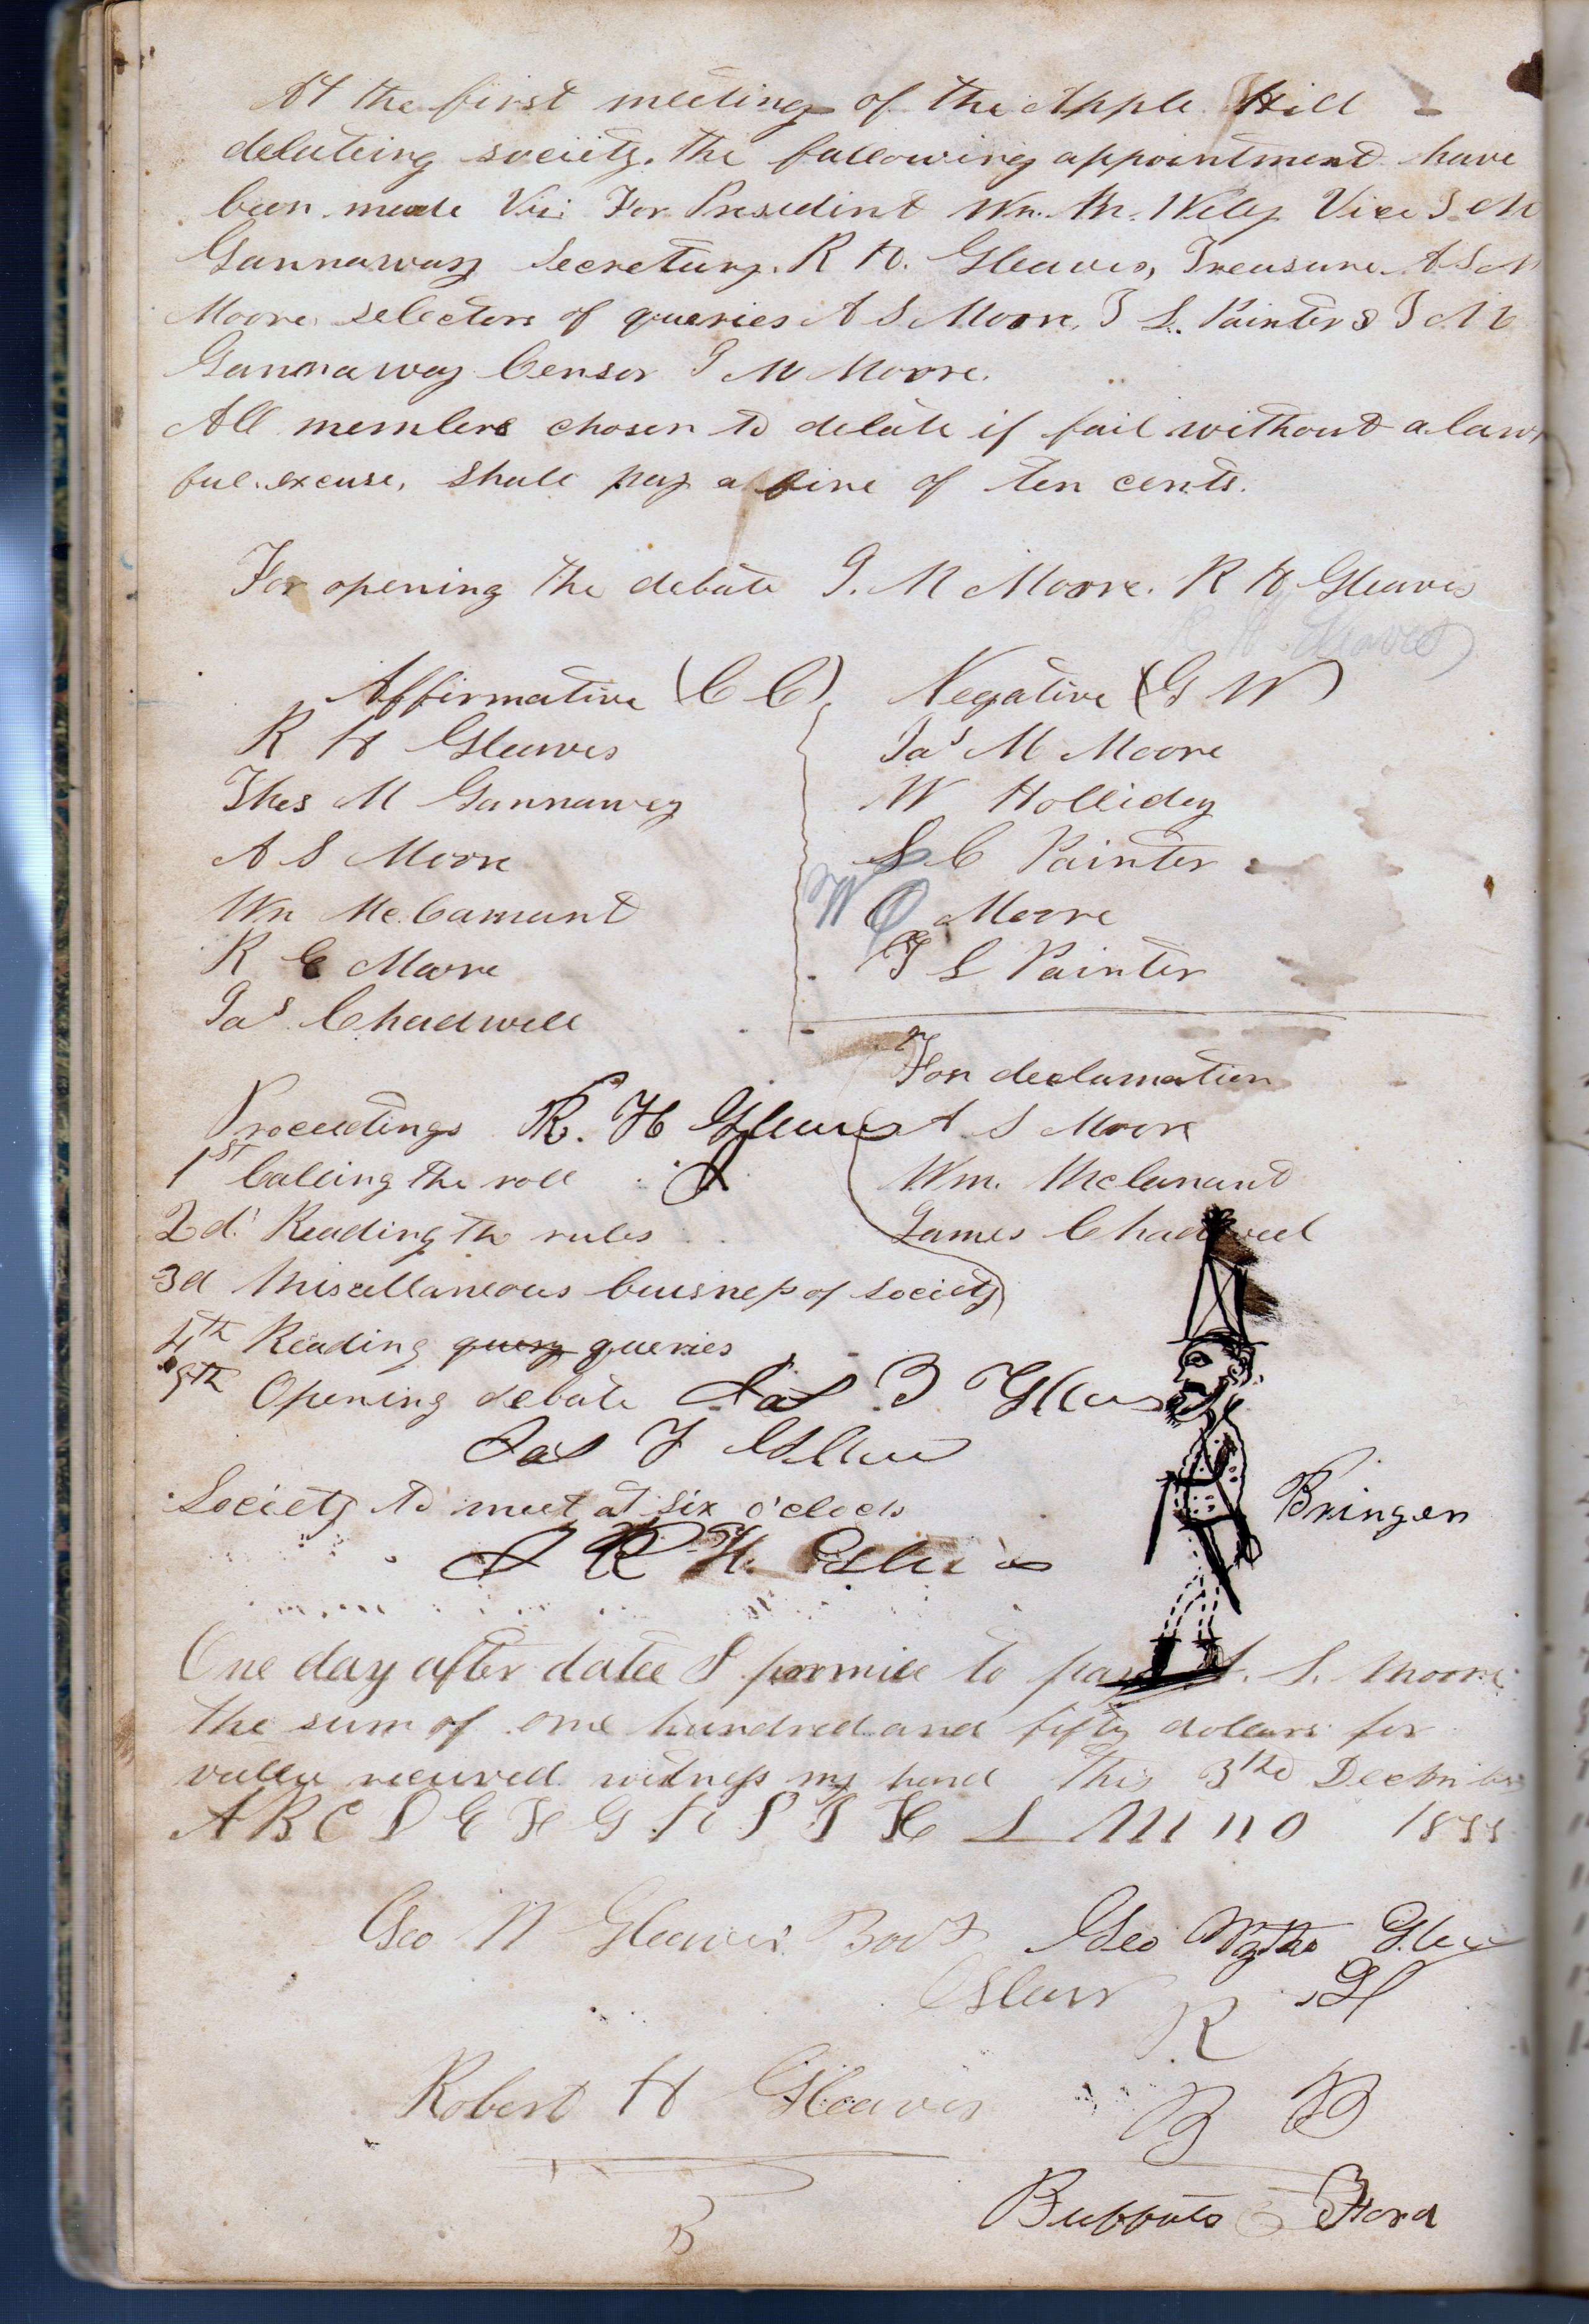 At the first meeting of the Apple Hill
debateing society. the following appointment have
been made Viz: For President Wm. M. Wily Vice T M
Gannaway Secretary. R H. Gleaves, Treasure. A S M
Moore selectors of queries A S Moore, T L. Painter & T M
Gannaway Censor J M Moore.
All members chosen to debate if fail without a law
ful excuse, shall pay a fine of ten cents.
For opening the debate J. M Moore. R H Gleaves
R H Gleaves
Affirmative (C C) Negative (G W)
R H Gleaves Jas M Moore
Thos M Gannaway W Holliday
A S Moore S C Painter
Wm McCamant W O Moore
R C Moore T L Painter
Jas Chadwell
For declamation
Proceedings R. H Gleaves A S Moore
1st Calling the roll Wm. McCamant
2d. Reading the rules James Chadwell
3d Miscellaneous buisness of Society
4th Reading query queries
5th Opening debate Jas T Gleaves
Jas T Gleaves
Society to meet at six o'clock
Bringen
J R H. Gleaves
One day after datee I prormise to pay A. S. Moore
the sum of one hundred and fifty dollars for
vallue received witness my hand this 3rd December
A B C D E F G H I J K L M N O 1855
Geo W Gleaves Geo Wythe Gleaves
Gleaves R G
Robert H Gleaves
B B
Buffalo Ford
B